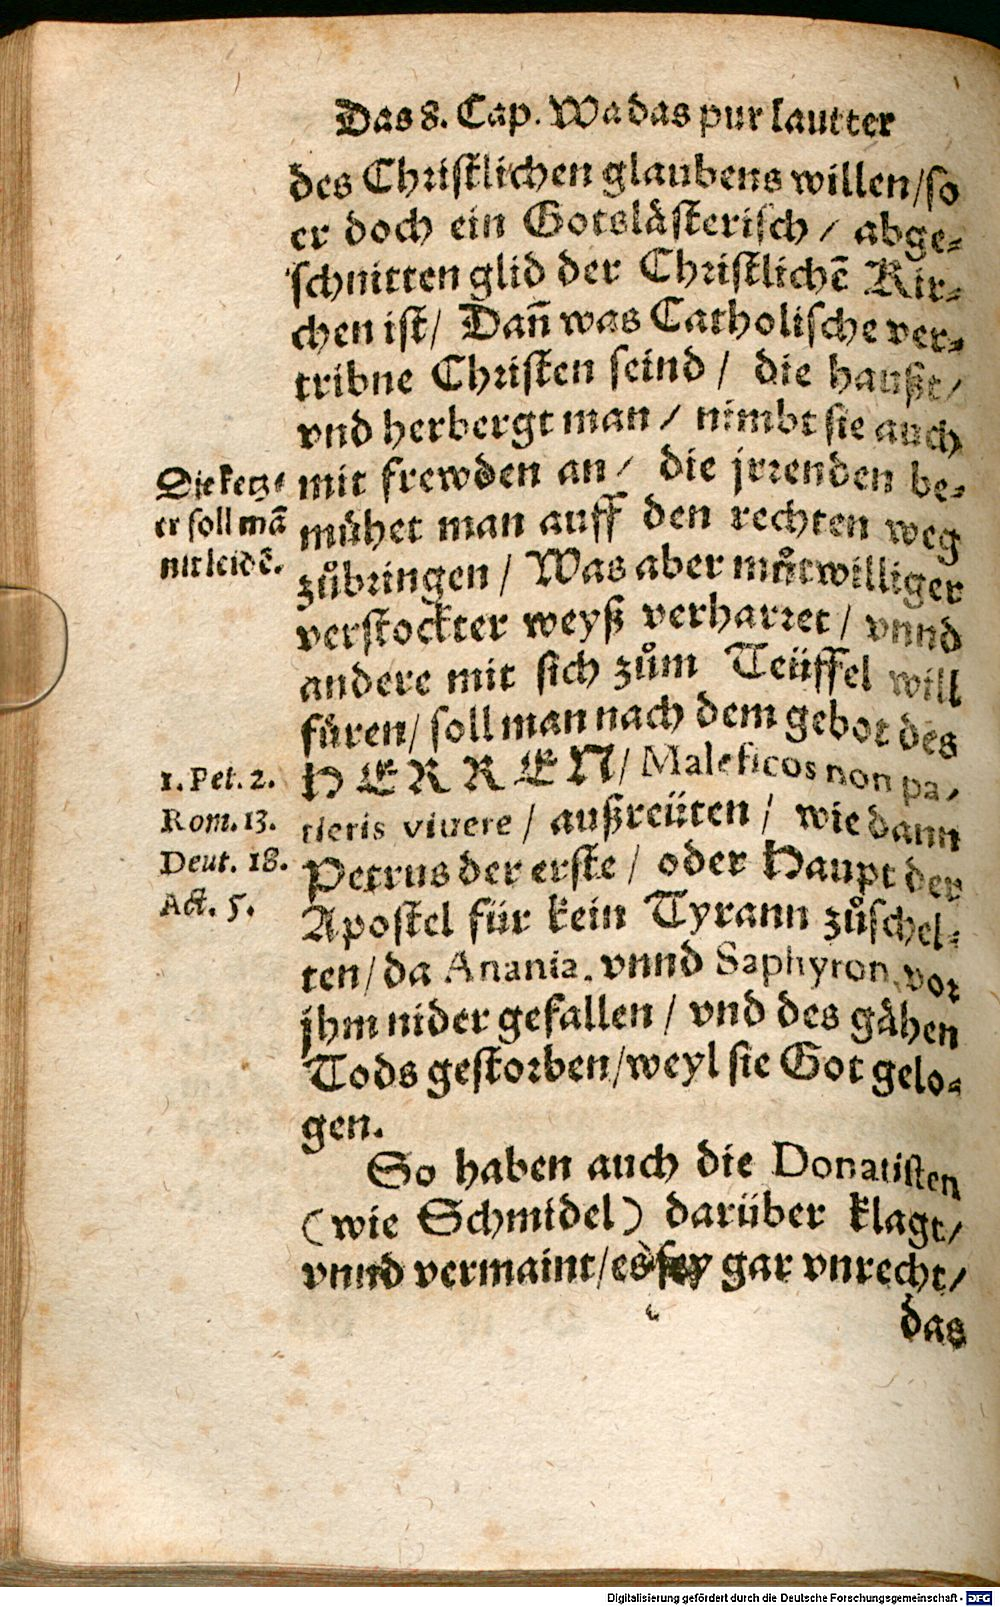 Das 8. Cap. Wa das pur lautter
des Christlichen glaubens willen/so
er doch ein Gotslästerisch / abge-
schnitten glid der Christlichē Kir-
chen ist/ Dañ was Catholische ver-
tribne Christen seind / die haußt/
vnd herbergt man / nimbt sie auch
mit frewden an / die jrrenden be-
mühet man auff den rechten weg
zůbringen / Was aber můtwilliger
verstockter weyß verharret / vnnd
andere mit sich zům Teüffel will
füren/ soll man nach dem gebot des
HERREN/ Maleficos non pa-
tieris viuere / außreüten / wie dann
Petrus der erste / oder Haupt der
Apostel für kein Tyrann zůschel-
ten/ da Anania. vnnd Saphyron vor
jhm nider gefallen / vnd des gähen
Tods gestorben/weyl sie Got gelo-
gen.
So haben auch die Donatisten
(wie Schmidel) darüber klagt/
vnnd vermaint/es sey gar vnrecht/
das
Die ketz-
er soll mā
nit leidē.
1. Pet. 2.
Rom. 13.
Deut. 18.
Act. 5.
Digitalisierung gefördert durch die Deutsche Forschungsgemeinschaft - DFG